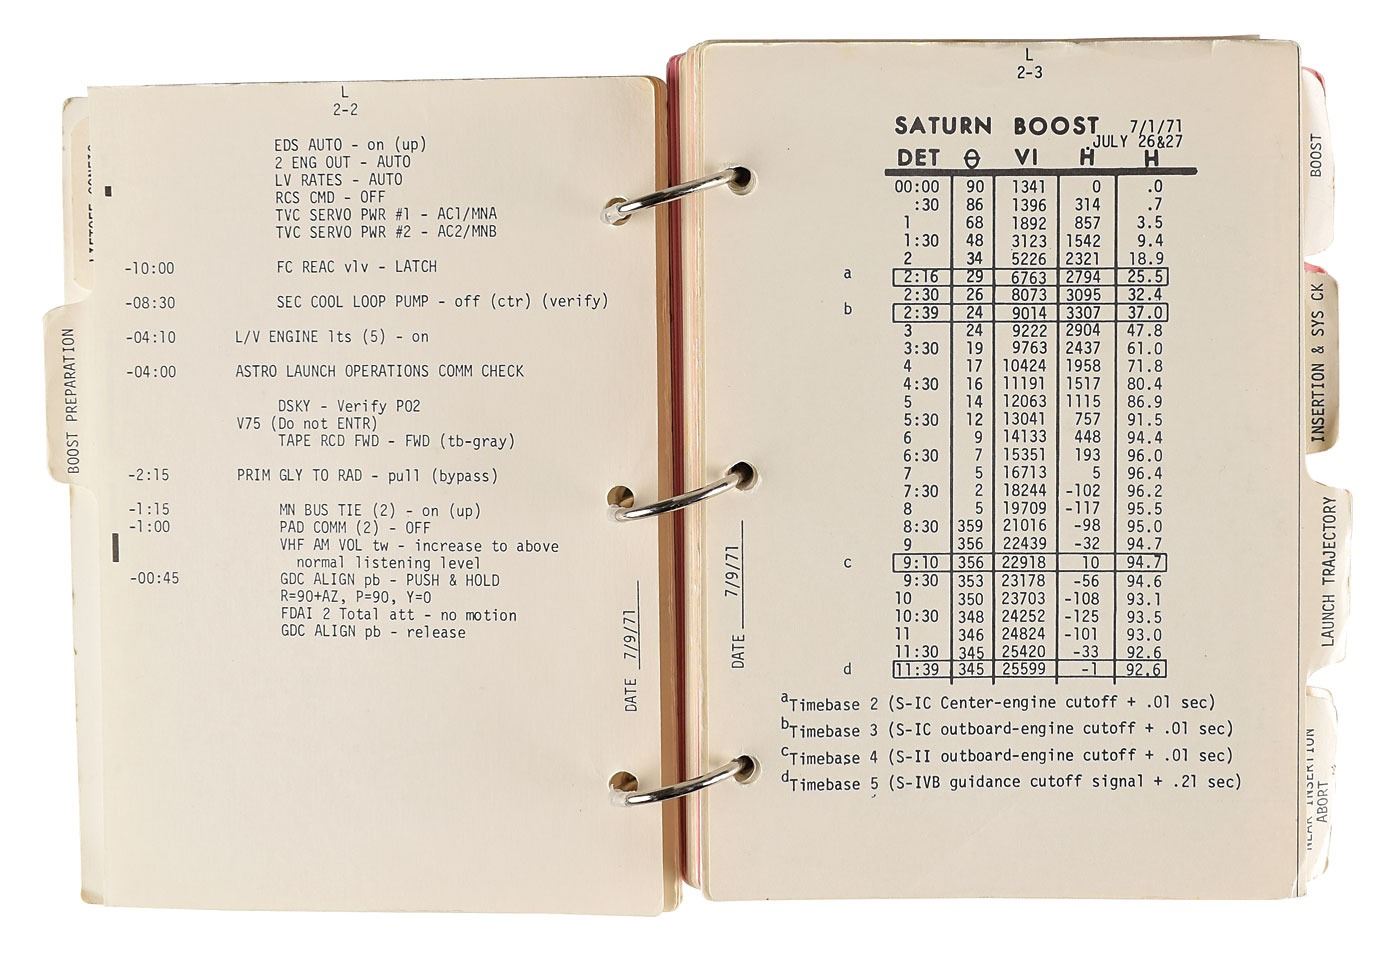 L
2-2
EDS AUTO - on (up)
2 ENG OUT - AUTO
LV RATES - AUTO
RCS CMD - OFF
TVC SERVO PWR #1 - AC1/MNA
TVC SERVO PWR #2 - AC2/MNB
-10:00 FC REAC vlv - LATCH
-08:30 SEC COOL LOOP PUMP - off (ctr) (verify)
-04:10 L/V ENGINE lts (5) - on
-04:00 ASTRO LAUNCH OPERATIONS COMM CHECK
DSKY - Verify P02
V75 (Do not ENTR)
TAPE RCD FWD - FWD (tb-gray)
-2:15 PRIM GLY TO RAD - pull (bypass)
-1:15 MN BUS TIE (2) - on (up)
-1:00 PAD COMM (2) - OFF
VHF AM VOL tw - increase to above
normal listening level
-00:45 GDC ALIGN pb - PUSH & HOLD
R=90+AZ, P=90, Y=0
FDAI 2 Total att - no motion
GDC ALIGN pb - release
DATE 7/9/71
BOOST PREPARATION
L
2-3
SATURN BOOST 7/1/71
JULY 26&27
DET θ VI Ḣ H
00:00 90 1341 0 .0
:30 86 1396 314 .7
1 68 1892 857 3.5
1:30 48 3123 1542 9.4
2 34 5226 2321 18.9
a 2:16 29 6763 2794 25.5
2:30 26 8073 3095 32.4
b 2:39 24 9014 3307 37.0
3 24 9222 2904 47.8
3:30 19 9763 2437 61.0
4 17 10424 1958 71.8
4:30 16 11191 1517 80.4
5 14 12063 1115 86.9
5:30 12 13041 757 91.5
6 9 14133 448 94.4
6:30 7 15351 193 96.0
7 5 16713 5 96.4
7:30 2 18244 -102 96.2
8 5 19709 -117 95.5
8:30 359 21016 -98 95.0
9 356 22439 -32 94.7
c 9:10 356 22918 10 94.7
9:30 353 23178 -56 94.6
10 350 23703 -108 93.1
10:30 348 24252 -125 93.5
11 346 24824 -101 93.0
11:30 345 25420 -33 92.6
d 11:39 345 25599 -1 92.6
aTimebase 2 (S-IC Center-engine cutoff + .01 sec)
bTimebase 3 (S-IC outboard-engine cutoff + .01 sec)
cTimebase 4 (S-II outboard-engine cutoff + .01 sec)
dTimebase 5 (S-IVB guidance cutoff signal + .21 sec)
DATE 7/9/71
BOOST
INSERTION & SYS CK
LAUNCH TRAJECTORY
INSERTION
ABORT